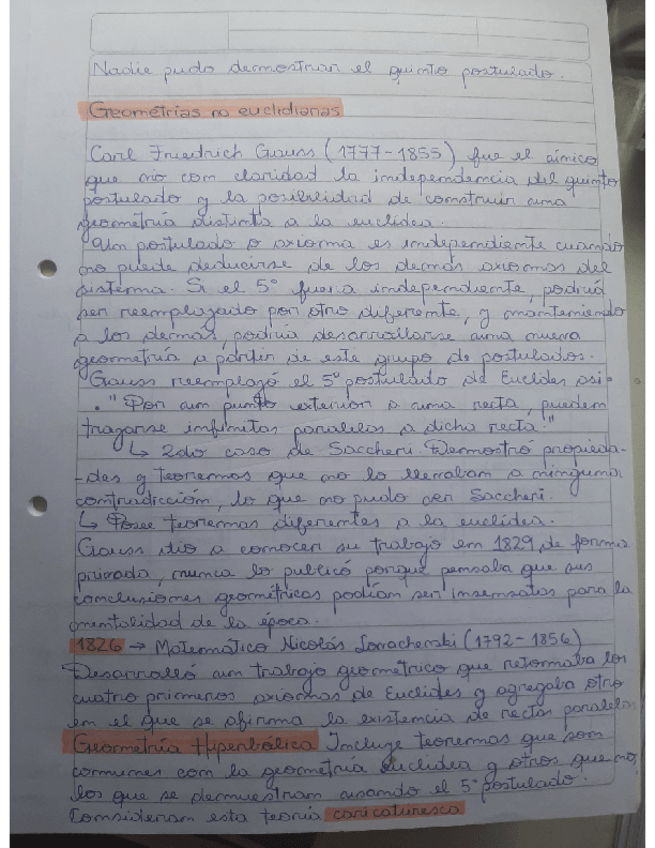 Nadie pudo demostrar el quinto postulado.
Geometrías no euclidianas
Carl Friedrich Gauss (1777-1855) fue el único
que vio con claridad la independencia del quinto
postulado y la posibilidad de construir una
geometría distinta a la euclídea.
Un postulado o axioma es independiente cuando
no puede deducirse de los demás axiomas del
sistema. Si el 5º fuera independiente, podría
ser reemplazado por otro diferente, y manteniendo
a los demás, podría desarrollarse una nueva
geometría a partir de este grupo de postulados.
Gauss reemplazó el 5º postulado de Euclides así:
• "Por un punto exterior a una recta, pueden
trazarse infinitas paralelas a dicha recta."
↳ 2do caso de Saccheri. Demostró propieda-
-des y teoremas que no lo llevaban a ninguna
contradicción, lo que no pudo ver Saccheri.
↳ Posee teoremas diferentes a la euclídea.
Gauss dio a conocer su trabajo en 1829, de forma
privada, nunca lo publicó porque pensaba que sus
conclusiones geométricas podían ser insensatas para la
mentalidad de la época.
1826 → Matemático Nicolás (1792-1856)
Desarrolló un trabajo geométrico que retomaba los
cuatro primeros axiomas de Euclides y agregaba otro
en el que se afirma la existencia de rectas paralelas
Geometría Hiperbólica Incluye teoremas que son
comunes con la geometría euclídea y otros que no,
los que se demuestran usando el 5º postulado.
Consideran esta teoría caricaturesca